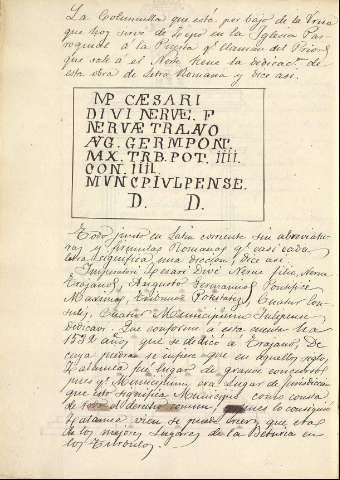 La Columnilla que está por bajo de la Urna
que hoy sirve de Lejio en la Iglesia Par-
roquial à la Puerta q.e llaman del Prior,
que sale a el Norte tiene la dedicac.n de
esta obra de letra Romana y dice asi.
MP CÆSARI
DIVI NERVÆ. F
NERVÆ TRAANO
AVG. GERM. PONT.
MX. TRB. POT. IIII.
CON. IIII.
MVNCPIVLPENSE.
D. D.
Todo junto en Latin corriente sin abreviatu-
ras y formulas Romanas q.e casi cada
letra significa una diccion, dice asi.
Imperatori Cesari Divi Nerve filio, Nerva
Trajano, Augusto Germanico Pontifice
Maximo, Tribunus Potestate, Cuatur Con-
sules, Cuatur Municipium Iulepense,
dedicavi. Que conforme à esta cuenta ha
1532 años, que se dedicó a Trajano. De
cuya piedra se infiere que en aquellos siglos,
Zalamea fué lugar de grande concurso
pues q.e Municipium era Lugar de jurisdiccion
que esto significa Municipio como consta
de todo el derecho comun, pues lo consiguió
Zalamea bien se puede creer que era
de los mejores Lugares de la Beturia en
los Turdulos.